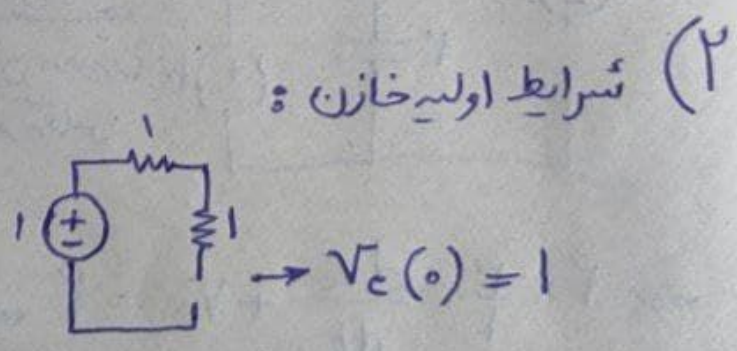 ۲) شرایط اولیه خازن :
۱
۱ + - ۱
→ Vc(۰) = ۱